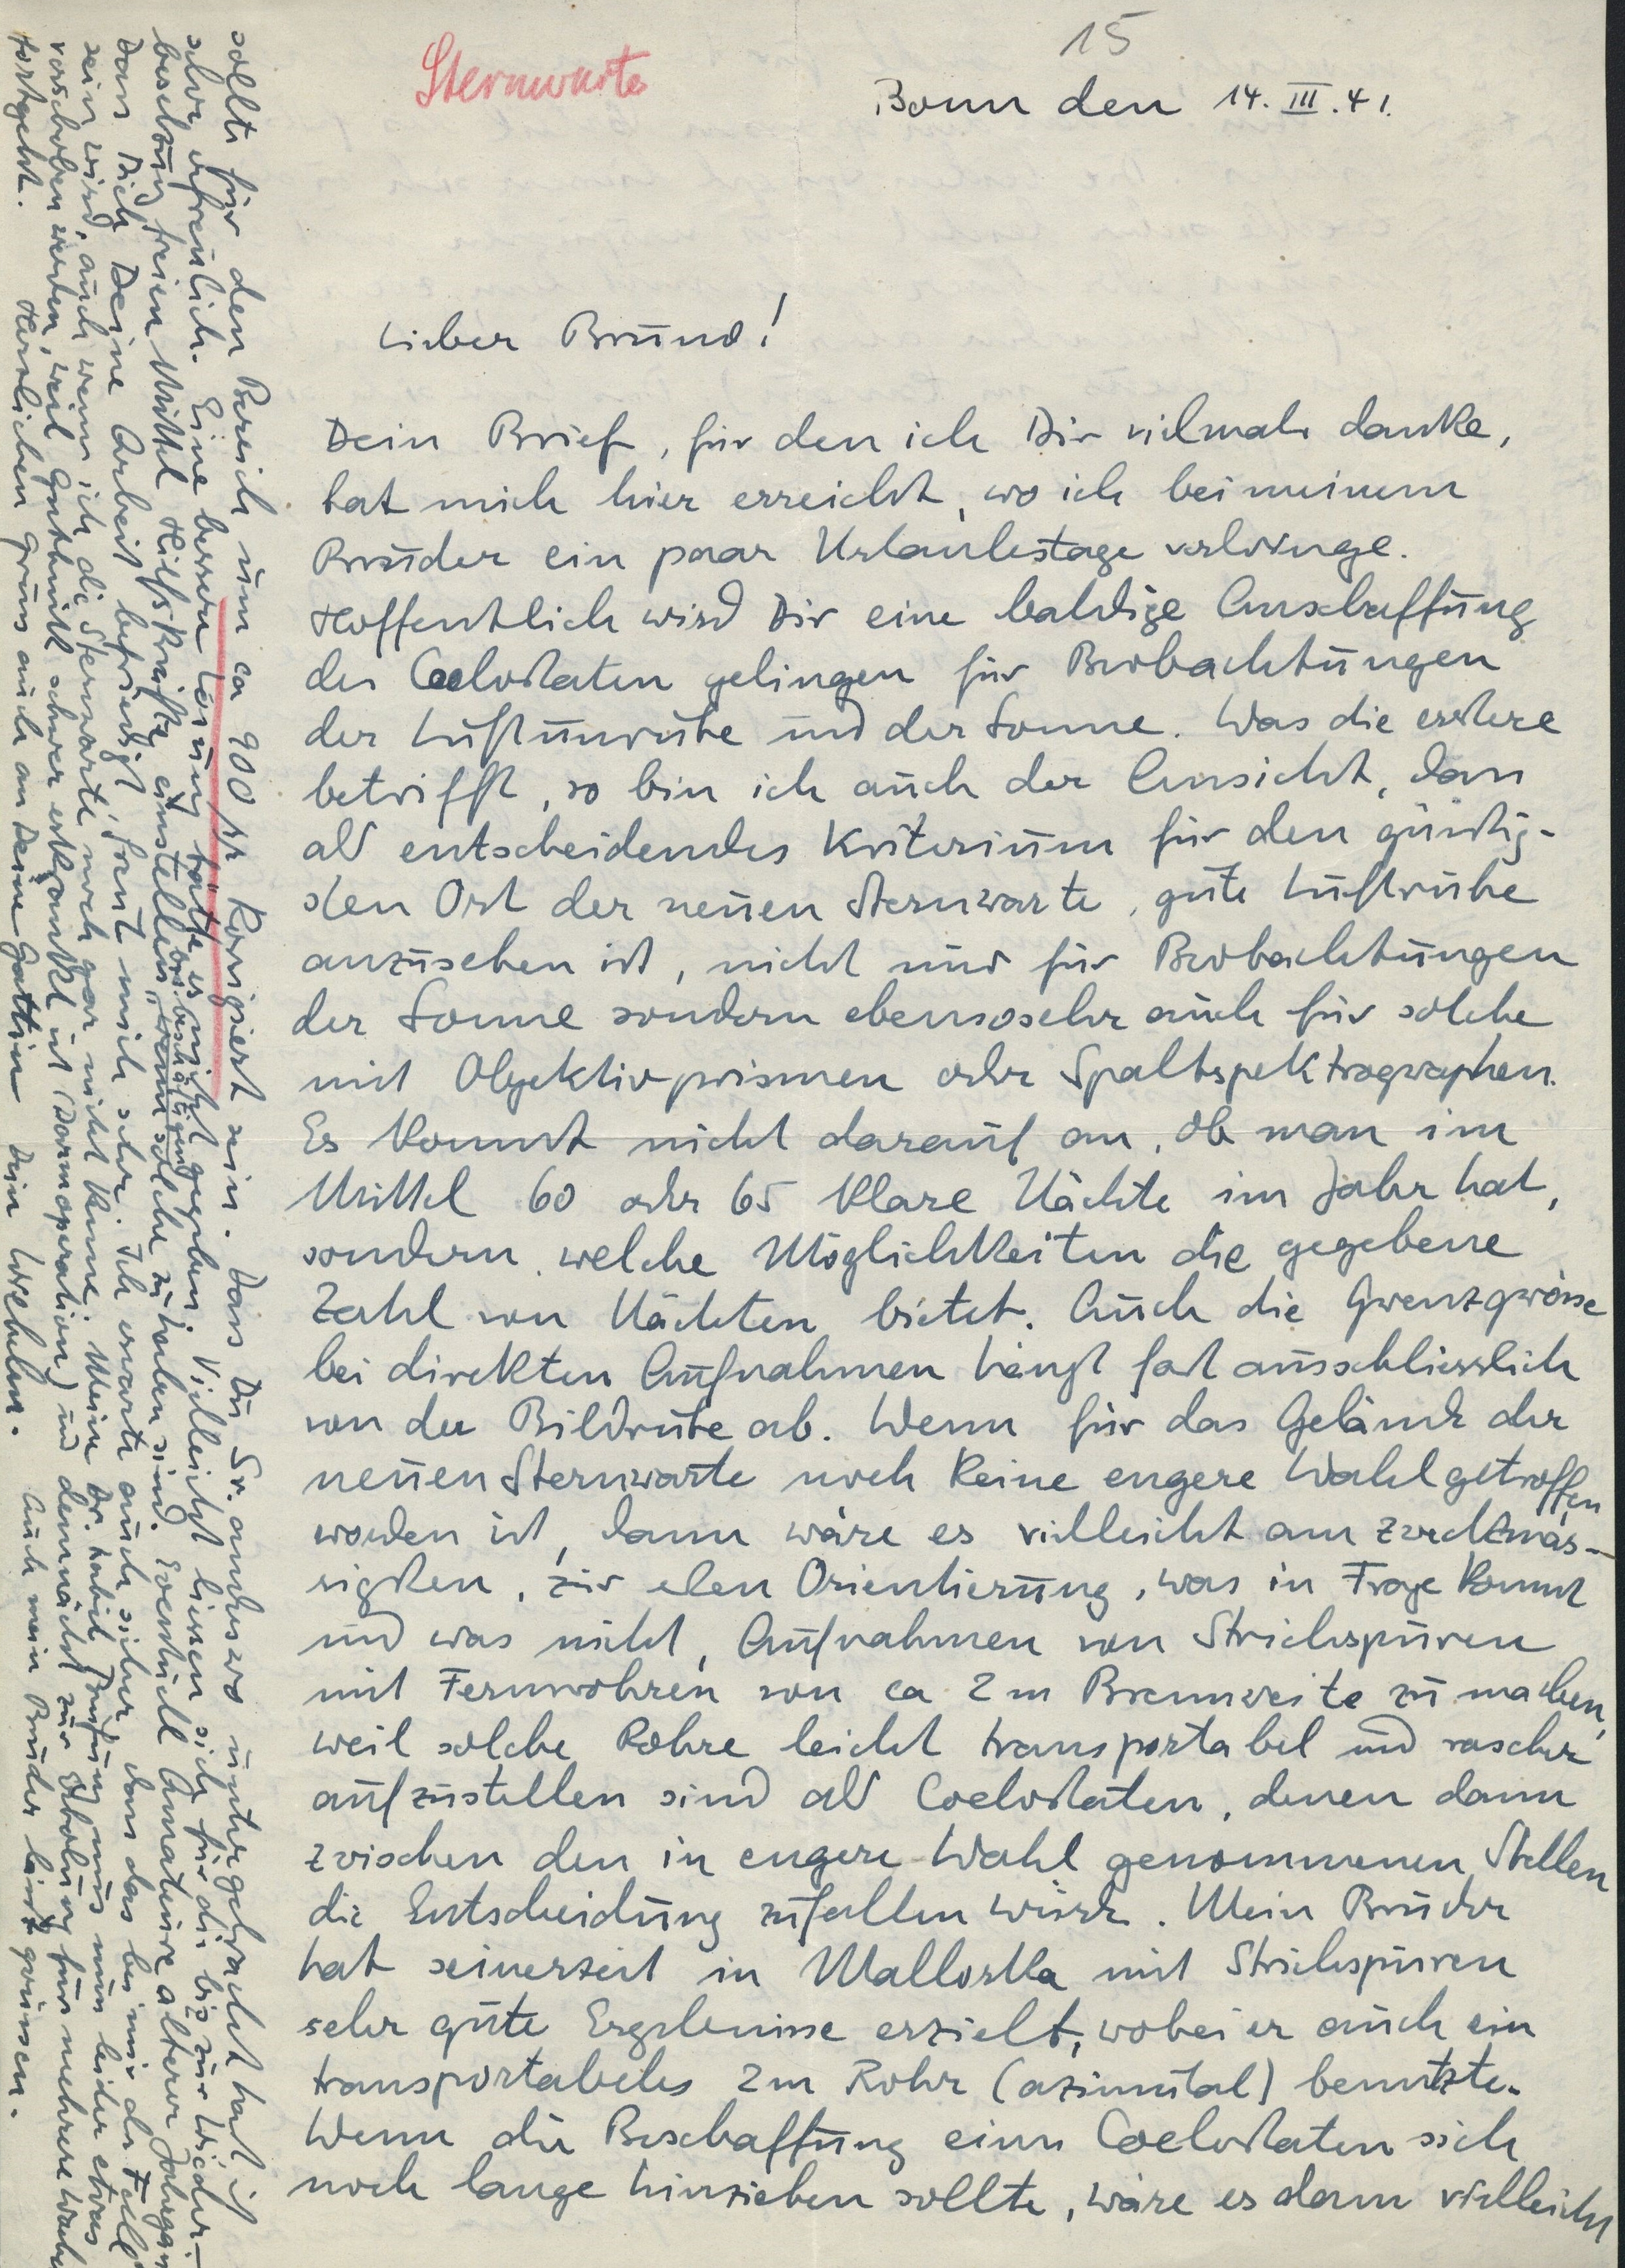 15
Sternwarte
Bonn den 14. III. 41.
Lieber Bruno!
Dein Brief, für den ich Dir vielmals danke,
hat mich hier erreicht, wo ich bei meinem
Bruder ein paar Urlaubstage verbringe.
Hoffentlich wird Dir eine baldige Anschaffung
des Coelostaten gelingen für Beobachtungen
der Luftunruhe und der Sonne. Was die erstere
betrifft, so bin ich auch der Ansicht, dass
als entscheidendes Kriterium für den günstig-
sten Ort der neuen Sternwarte, gute Luftruhe
anzusehen ist, nicht nur für Beobachtungen
der Sonne sondern ebensosehr auch für solche
mit Objektivprismen oder Spaltspektrographen.
Es kommt nicht darauf an, ob man im
Mittel 60 oder 65 klare Nächte im Jahr hat,
sondern welche Möglichkeiten die gegebene
Zahl von Nächten bietet. Auch die Grenzgrösse
bei direkten Aufnahmen hängt fast ausschliesslich
von der Bildruhe ab. Wenn für das Gelände der
neuen Sternwarte noch keine engere Wahl getroffen
worden ist, dann wäre es vielleicht am zweckmäs-
sigsten, zur Orientierung, was in Frage kommt
und was nicht, Aufnahmen von Strichspuren
mit Fernrohren von ca 2 m Brennweite zu machen,
weil solche Rohre leicht transportabel und rascher
aufzustellen sind als Coelostaten, denen dann
zwischen den in engere Wahl genommenen Stellen
die Entscheidung zufallen würde. Mein Bruder
hat seinerzeit in Mallorka mit Strichspuren
sehr gute Ergebnisse erzielt, wobei er auch ein
transportables 2 m Rohr (azimutal) benutzte.
Wenn die Beschaffung eines Coelostaten sich
noch lange hinziehen sollte, wäre es dann vielleicht
sollte für den Bereich um ca 900 korrigiert sein. Dass Du Sr. anderswo untergebracht hast ist
sehr erfreulich. Eine bessere Lösung hätte es nicht gegeben. Vielleicht liessen sich für die bis zur Wieder-
besetzung freien Mittel Hilfskräfte einstellen, wenn solche zu haben sind. Eventuell Amateure älterer
Dass Dich Deine Arbeit befriedigt, freut mich sehr. Ich erwarte auch sicher dass das bei mir der Fall
sein wird, auch wenn ich die Sternwarte noch gar nicht kenne. Meine Dr. habil Prüfung muss nun leider etwas
verschoben werden, weil Guthnick schwer erkrankt ist (Darmoperation) und demnächst zur Erholung für mehrere
fortgeht. Herzlichen Gruss auch an Deine Gattin Dein Wilhelm. Auch mein Bruder lässt grüssen.